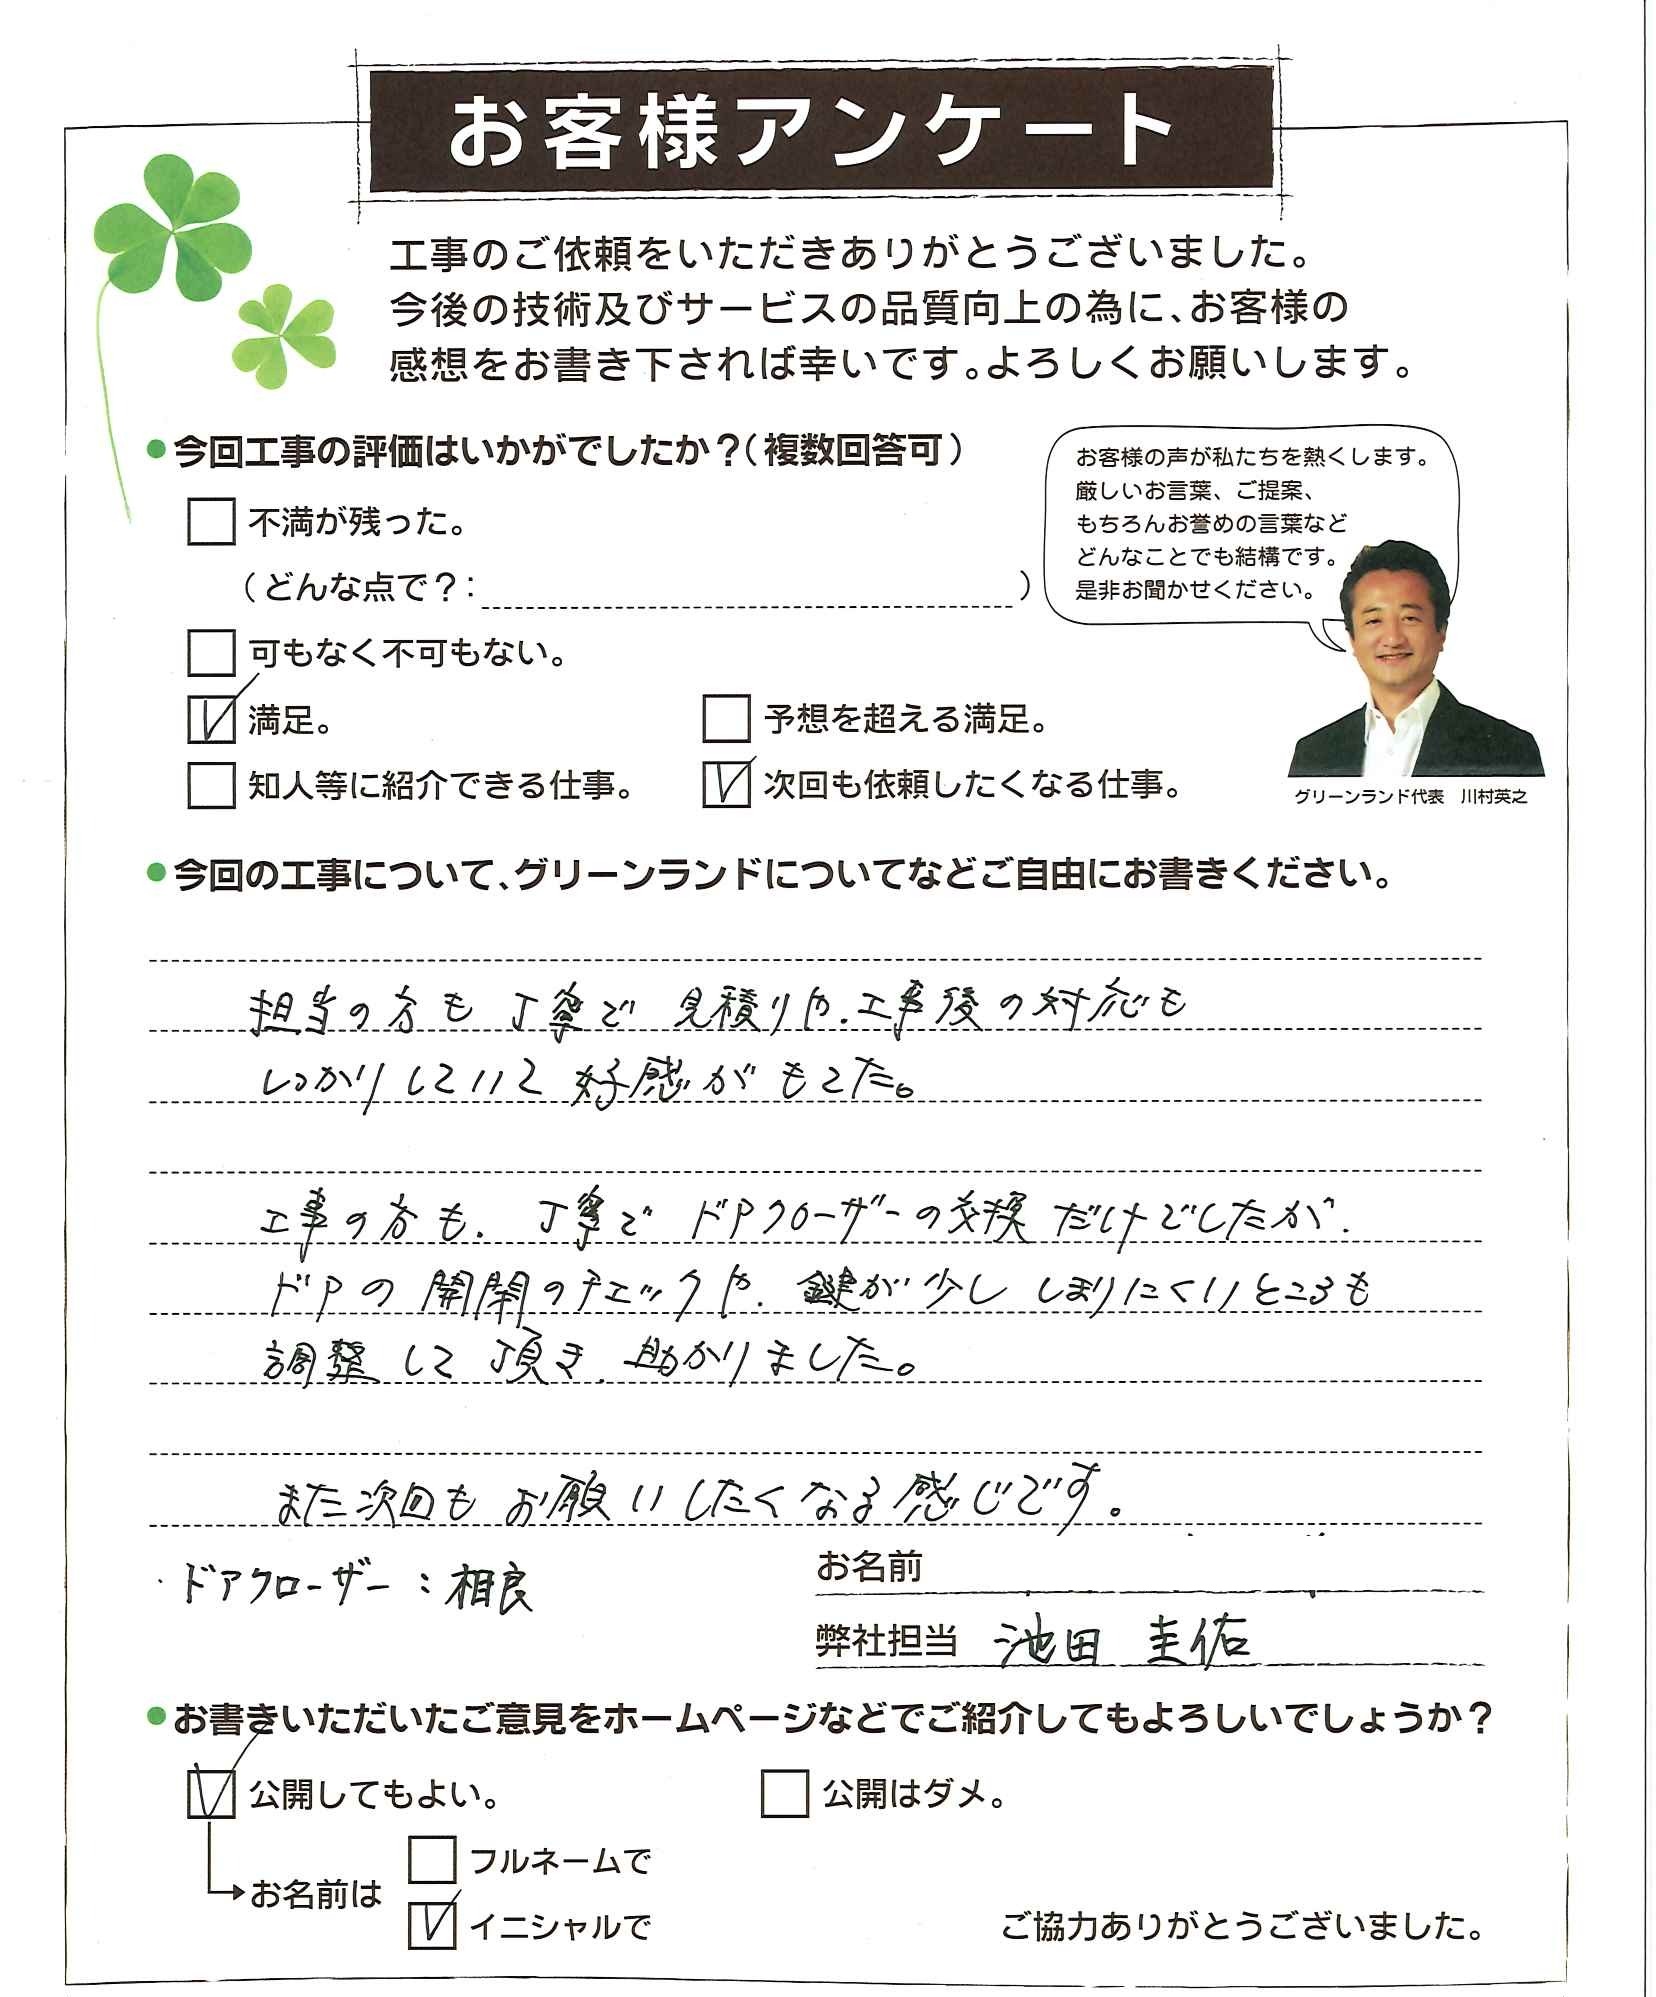 お客様アンケート
工事のご依頼をいただきありがとうございました。
今後の技術及びサービスの品質向上の為に、お客様の
感想をお書き下されば幸いです。よろしくお願いします。
●今回工事の評価はいかがでしたか？（複数回答可）
不満が残った。
（どんな点で？：　）
可もなく不可もない。
満足。
予想を超える満足。
知人等に紹介できる仕事。
次回も依頼したくなる仕事。
お客様の声が私たちを熱くします。
厳しいお言葉、ご提案、
もちろんお誉めの言葉など
どんなことでも結構です。
是非お聞かせください。
グリーンランド代表　川村英之
●今回の工事について、グリーンランドについてなどご自由にお書きください。
担当の方も丁寧で見積りや、工事後の対応も
しっかりしていて好感がもてた。
工事の方も、丁寧でドアクローザーの交換だけでしたが、
ドアの開閉のチェックや、鍵が少ししまりにくいところも
調整して頂き、助かりました。
また次回もお願いしたくなる感じです。
・ドアクローザー：相良
お名前
弊社担当　池田 圭佑
●お書きいただいたご意見をホームページなどでご紹介してもよろしいでしょうか？
公開してもよい。
公開はダメ。
お名前は
フルネームで
イニシャルで
ご協力ありがとうございました。